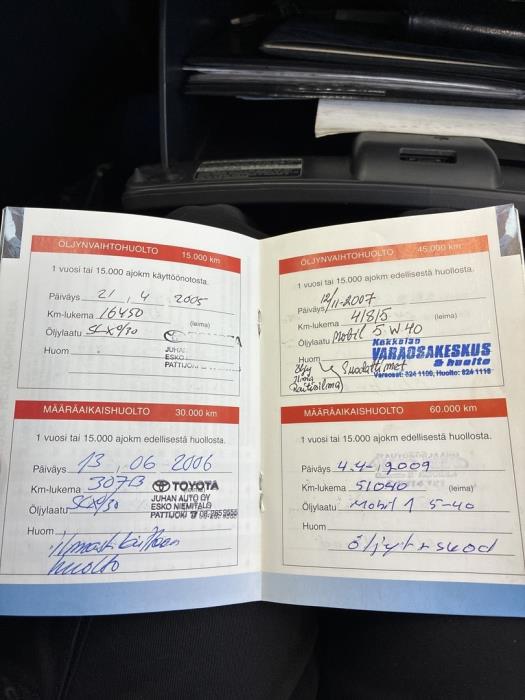 ÖLJYNVAIHTOHUOLTO 15.000 km
1 vuosi tai 15.000 ajokm käyttöönotosta.
Päiväys 21 . 4 2005
Km-lukema 16450
Öljylaatu (leima)
Huom JUHA
ESKO
PATTIJOKI
MÄÄRÄAIKAISHUOLTO 30.000 km
1 vuosi tai 15.000 ajokm edellisestä huollosta.
Päiväys 13 . 06 2006
Km-lukema 30713 TOYOTA
JUHAN AUTO OY
Öljylaatu ESKO NIEMITALO
PATTIJOKI
Huom
huolto
ÖLJYNVAIHTOHUOLTO 45.000 km
1 vuosi tai 15.000 ajokm edellisestä huollosta.
Päiväys 12/11-2007
Km-lukema 41815 (leima)
Öljylaatu Mobil 5W40
Kokkolan
Huom VARAOSAKESKUS
& huolto
Varaosat: 824 1100, Huolto: 824 1110
öljy Suodattimet
ilma
(Raitisilma)
MÄÄRÄAIKAISHUOLTO 60.000 km
1 vuosi tai 15.000 ajokm edellisestä huollosta.
Päiväys 4.4-2009
Km-lukema 51040 (leima)
Öljylaatu Mobil 1 5-40
Huom
öljyt + suod